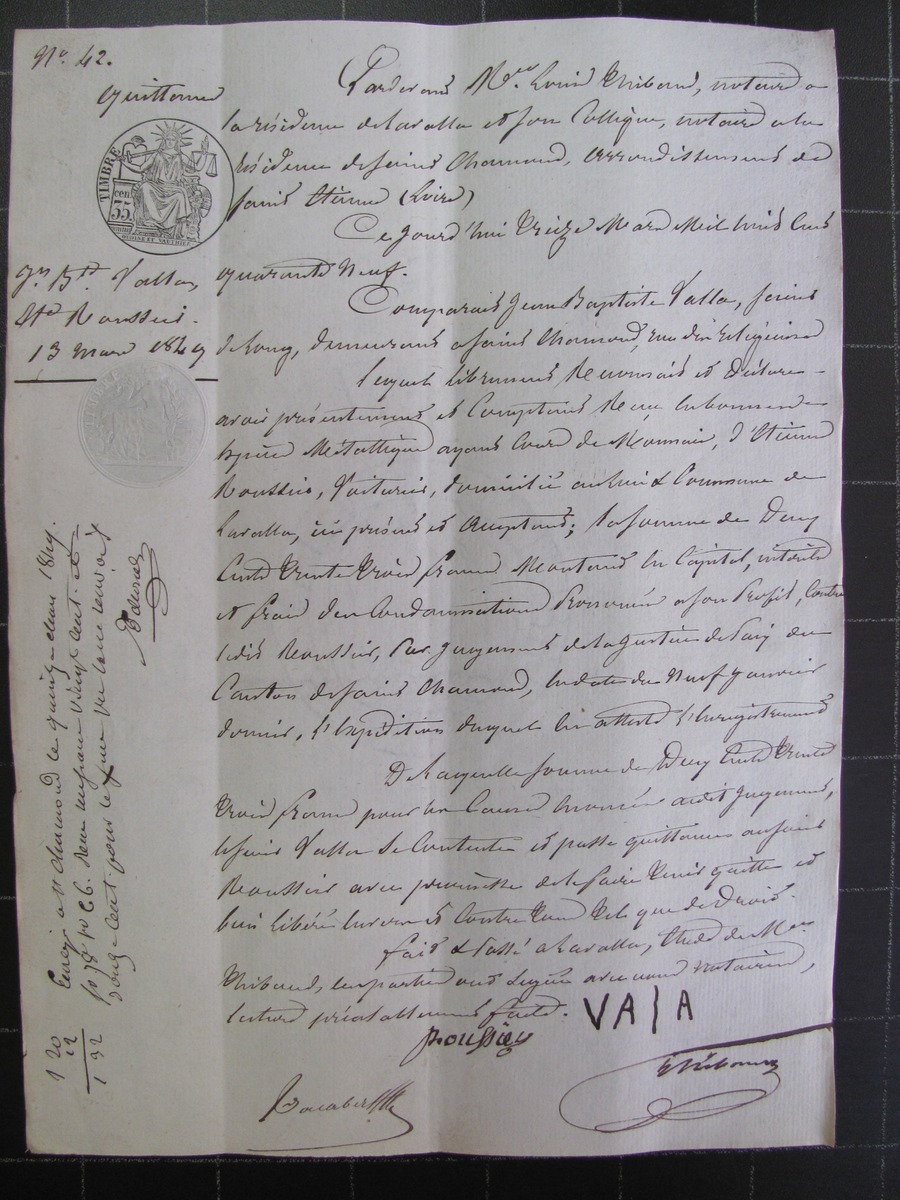 No. 42.
quittance
TIMBRE
35
cen
Jn Bte Valla,
Ate Roussier.
13 Mars 1849
Pardevant Me. Louis Thibaud, notaire a
la résidence de Lavalla et son Collègue, notaire a la
résidence de Saint Chamond, arrondissement de
Saint Etienne (Loire)
Ce jourd'hui treize Mars Mil huit Cent
quarante Neuf.
Comparait Jean Baptiste Valla, scieur
de long, demeurant a Saint Chamond, rue des religieuses
lequel librement Reconnait et Déclare
avoir présentement et Comptant Reçu en bonnes
Espèces Métallique ayant Cours de Monnaie, d'Etienne
Roussier, Voiturier, domicilié au & Commune de
Lavalla, ici présent et Acceptant; la somme de Deux
Cents trente trois francs Montant en Capital, intérêts
et frais des Condamnations Prononcées a son Profit, Contre
ledit Roussier, Par jugement de la justice de Paix du
Canton de Saint Chamond, en date du Neuf Janvier
dernier, l'Expédition duquel en atteste l'Enregistrement
De laquelle somme de Deux Cents trente
trois francs pour les Causes énoncées audit jugement,
le sieur Valla se Contente et passe quittance au sieur
Roussier avec promesse de le faire tenir quitte et
bien libéré envers et Contre tous tels que de Droit.
fait & Passé a Lavalla, Etude de Me
Thibaud, les parties ont Signé avec nous Notaires,
lecture préalablement faite.
VALA
Roussier
Thibaud
Enregé a St Chamond le quinze mars 1849.
fo 79 ro C6. Reçu un franc vingt cent. et
douze cent pour le
1 20
12
1 32